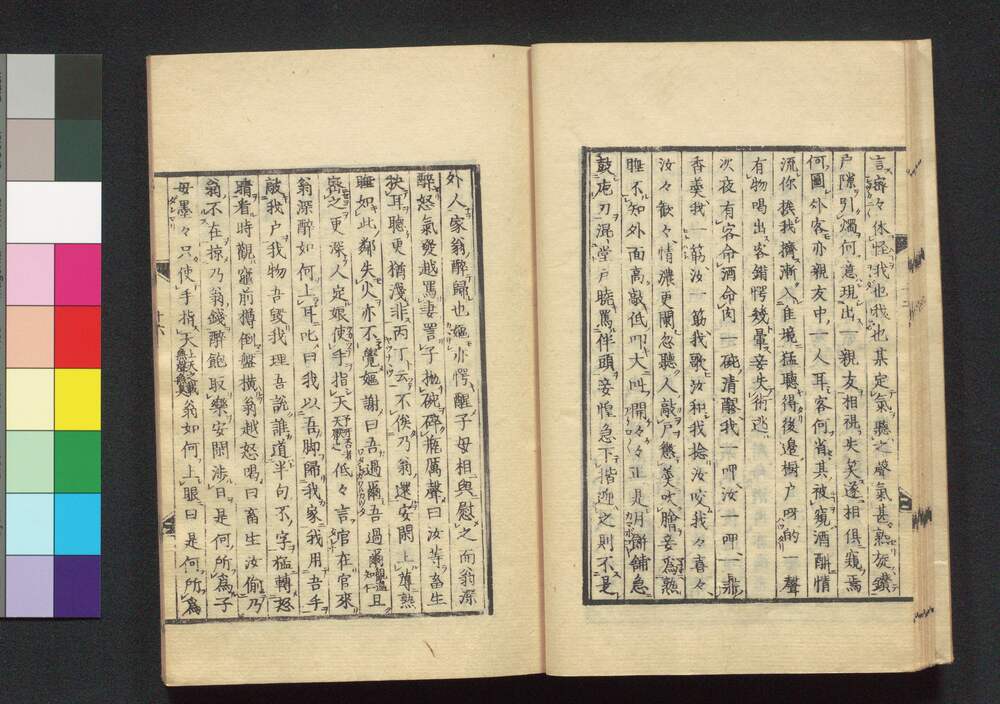 言擠々休怪我也我也其定氣聽之聲氣甚熟旋鑽
戶隙引燭何意現出一親友相挑失笑遂相俱窺焉
何圖外客亦親友中一人耳客何省其被窺酒酣情
流你挨我擠漸入佳境猛聽得後邊櫥戶呀的一聲
有物喝出客錯愕幾暈妾失術逃
次夜有客命酒命肉一碗清醪我一呷汝一呷一鼎
香羹我一筯汝一筯我歌汝和我捻汝咬我々喜々
汝々歡々情濃更闌忽聽人敲戶慾羹吹膾妾為熟
睡不知外面高敲低叩大叫開々々正是月餅舖急
鼓庖刀混堂戶臨罵伴頭妾惶急下揩迎之則不是
外人家翁醉歸也嫗亦愕醒子母相與慰之而翁深
醉怒氣發越罵妻詈子拋碗碎瓶厲聲曰汝等畜生
抉耳聽更猶漫非丙丁云不俟乃翁還安閉上蓐熟
睡如此鄰失火亦不覺嫗謝曰吾過爾吾過爾且
喪之更深人定娘使手指天低々言官在官來
翁深醉如何上耳叱曰我以吾脚歸我家我用吾手
敲我戶我物吾發我理吾說誰道半句不字猛轉怒
睛看時觀竈前樽倒盤橫翁越怒喝曰畜生汝偷乃
翁不在掠乃翁錢醉飽取樂安閑涉日是何所為子
母墨々只使手指天翁如何上眼曰是何所為
十六